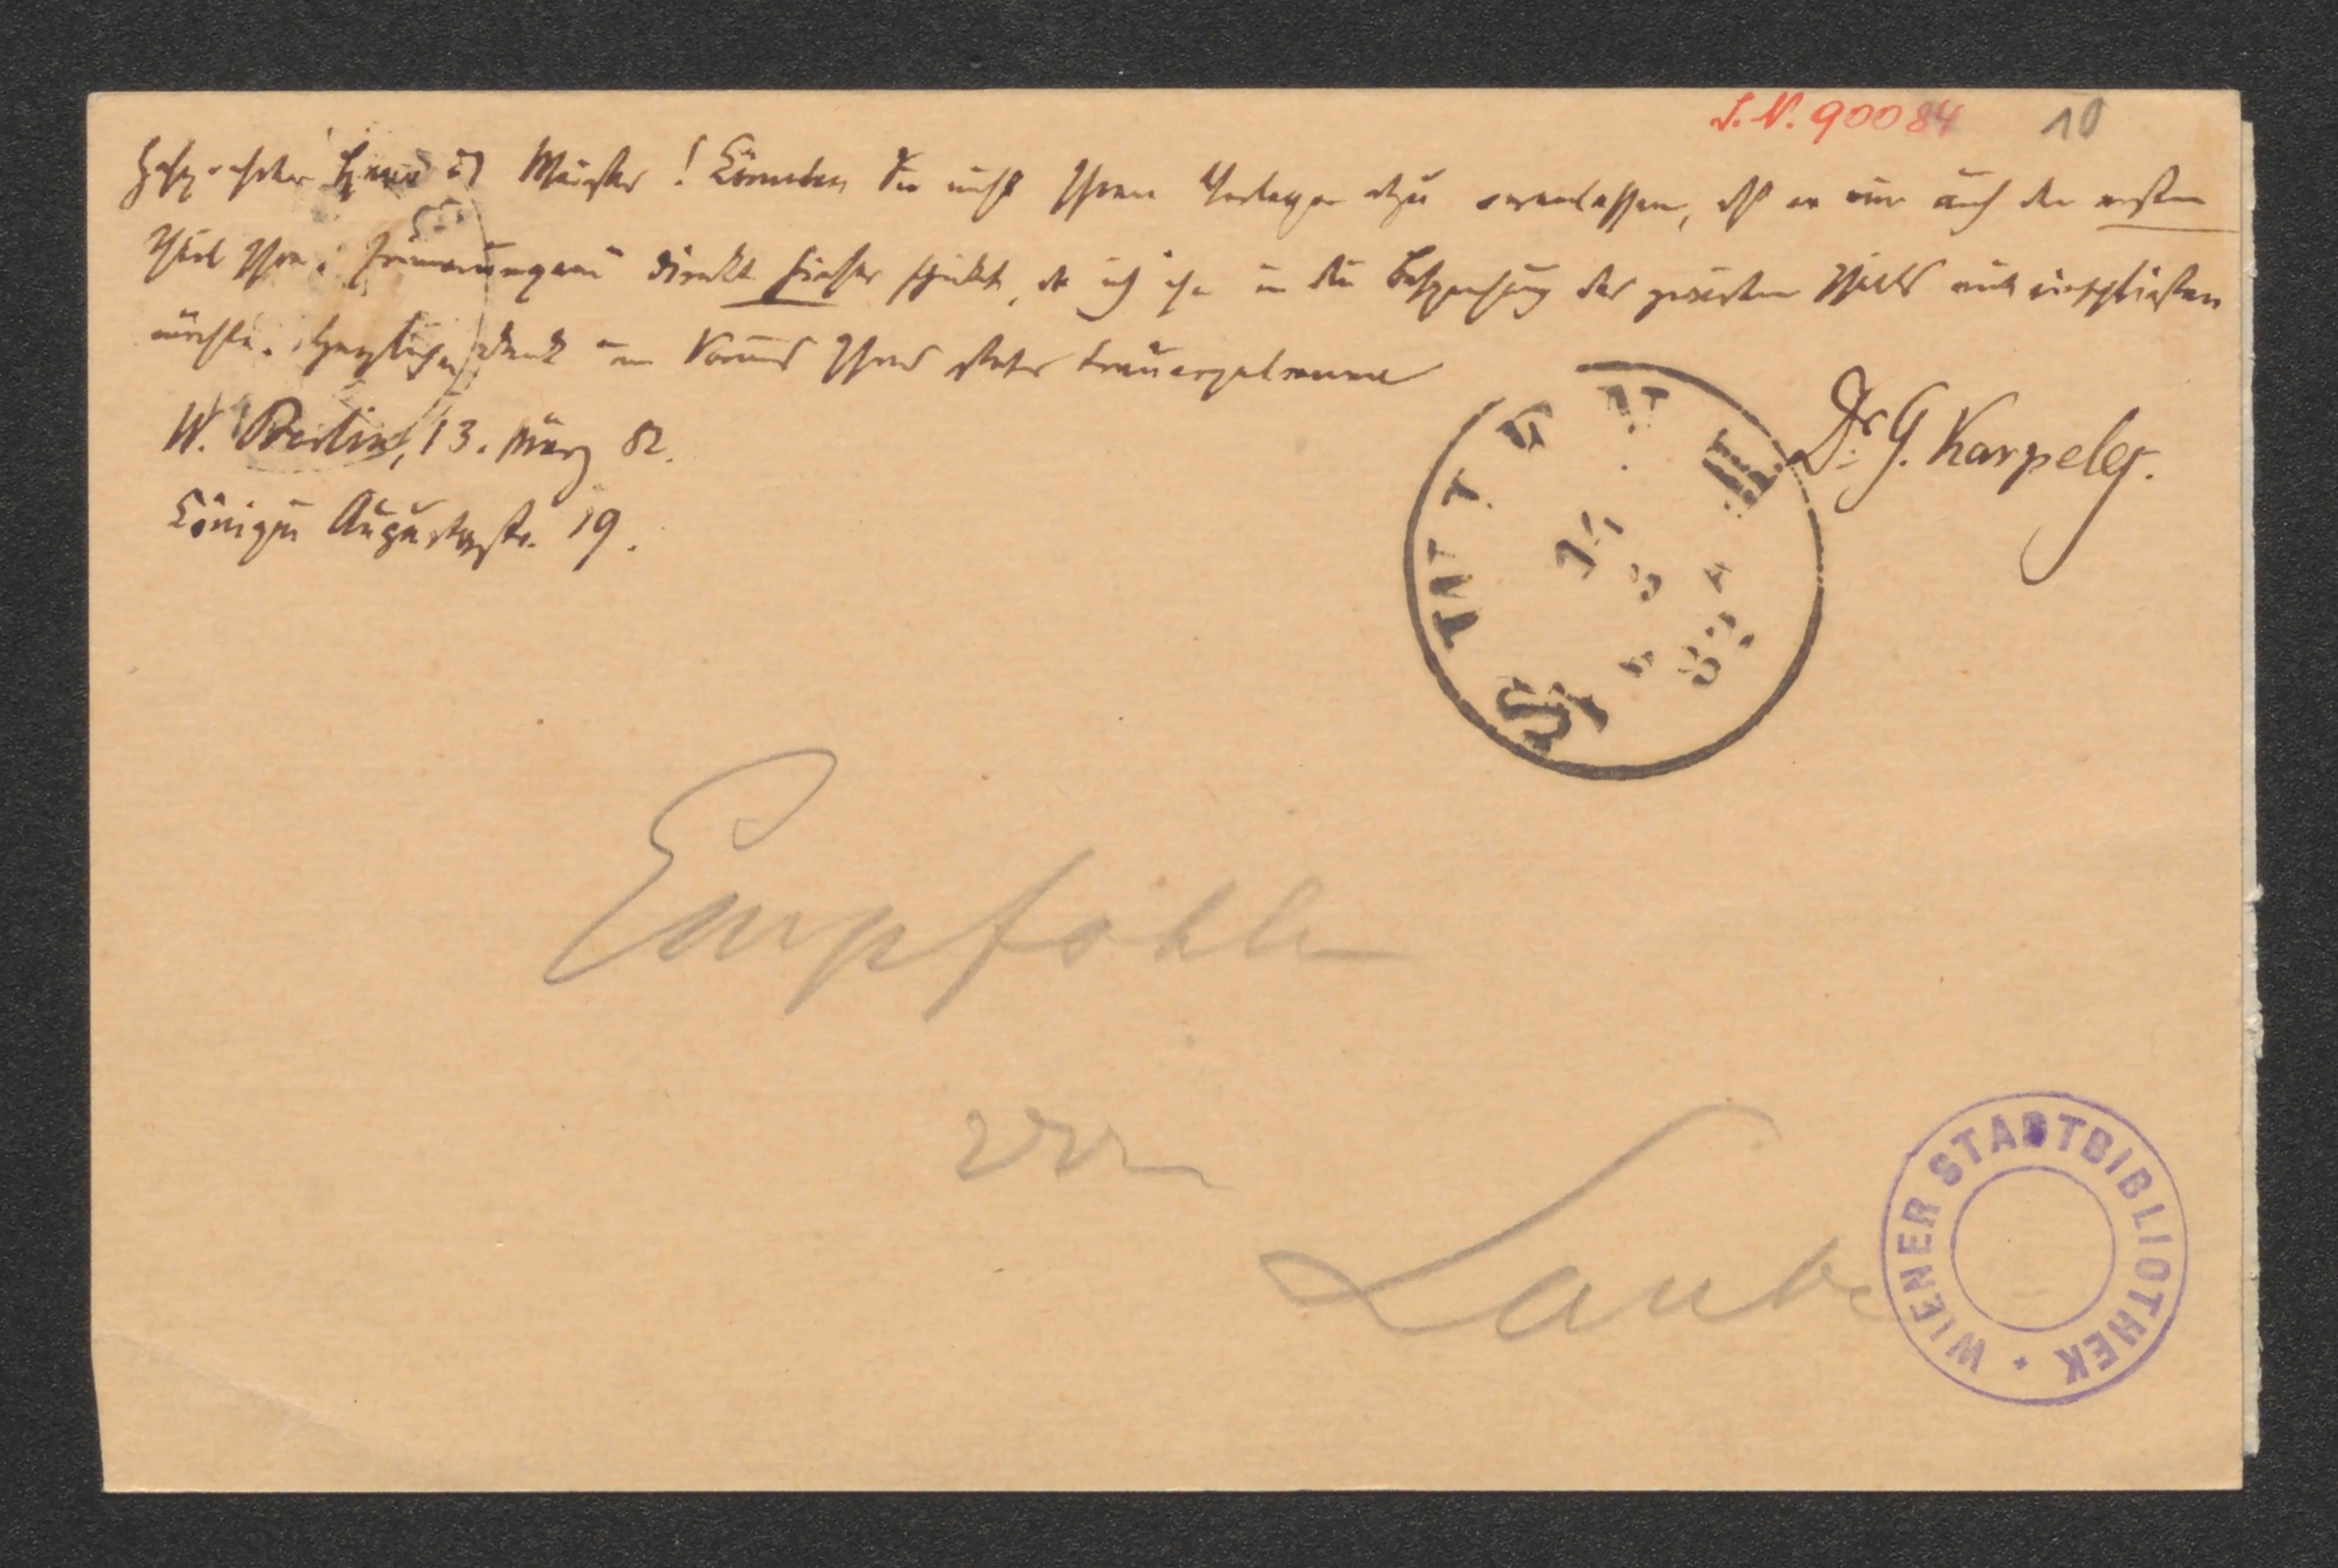 I. N. 90084 10
Hochverehrter Herr u Meister! Könnten Sie nicht Ihren Verleger dazu veranlassen, daß er mir auch den ersten
Theil Ihrer Erinnerungen direkt hieher schickt, da ich ihn in die Besprechung des zweiten Theils mit einschließen
möchte. Herzlichen Dank im Voraus Ihres stets treuergebenen
Dr. G. Karpeles.
W. Berlin, 13. März 82.
Königin Augustastr. 19.
Empfohlen
von
Laube
WIENER STADTBIBLIOTHEK